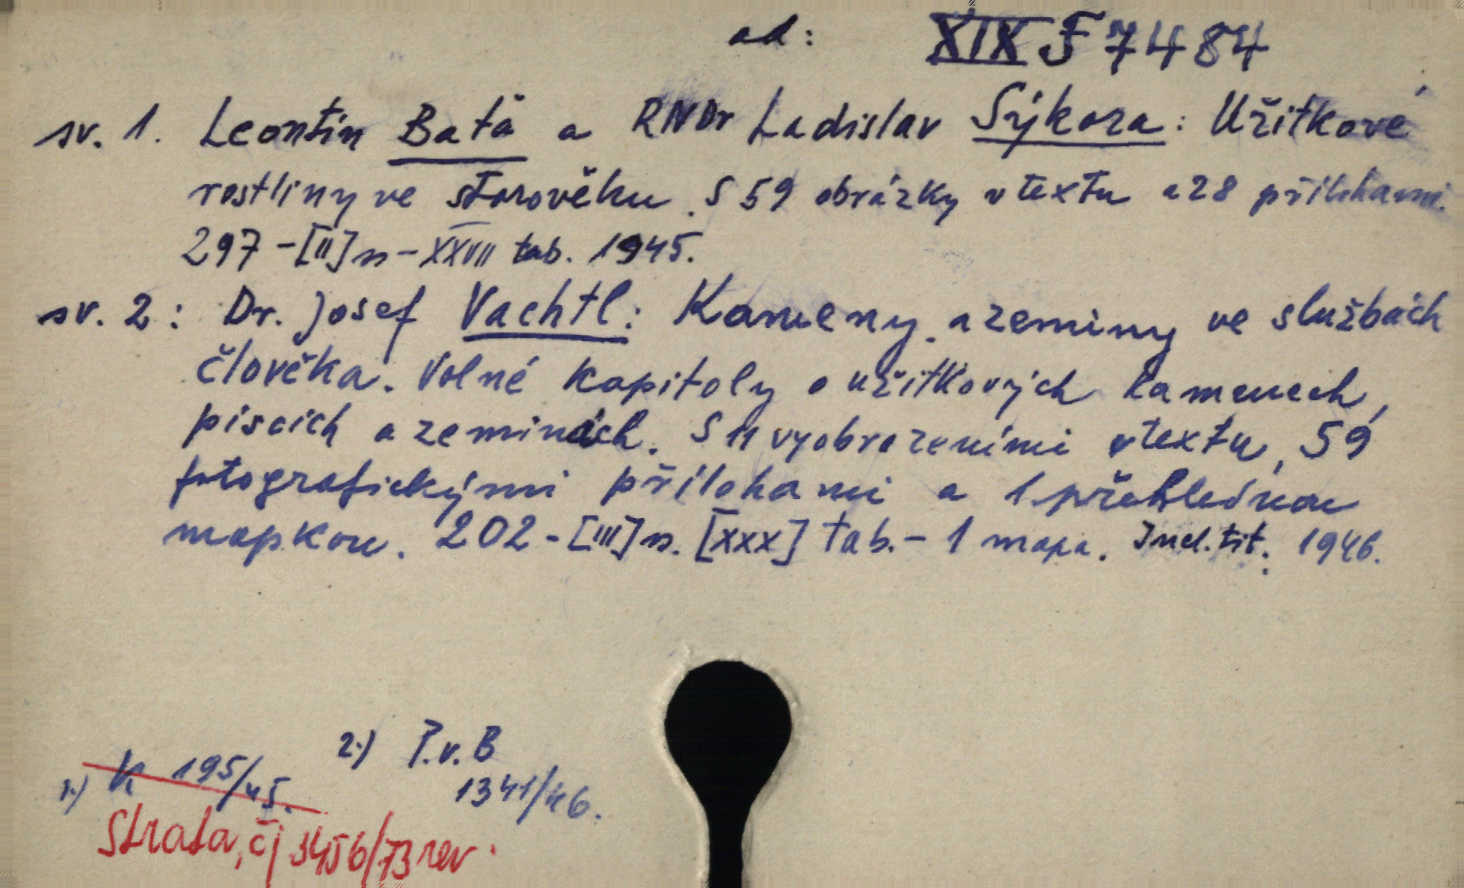 ad: XIX F 7484
sv. 1. Leontin Baťa a RNDr Ladislav Sýkora: Užitkové
rostliny ve starověku. S 59 obrázky v textu a 28 přílohami.
297 - [II] s - XXVII tab. 1945.
sv. 2: Dr. Josef Vachtl: Kameny a zeminy ve službách
člověka. Volné kapitoly o užitkových kamenech,
píscích a zeminách. S 11 vyobrazeními v textu, 59
fotografickými přílohami a 1 přehlednou
mapkou. 202 - [III] s. [XXX] tab. - 1 mapa. Ind. tit. 1946.
2.) P.v.B
1.) K 195/45.
1341/46.
Strata, čj 3456/73 rev.